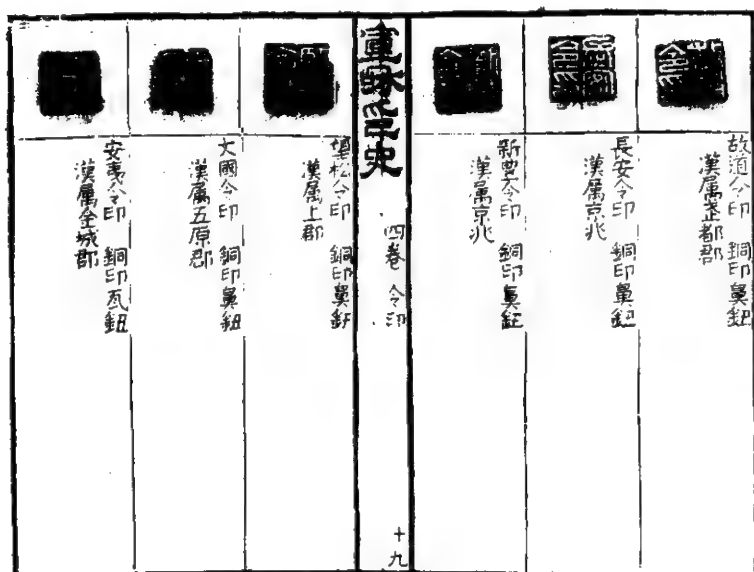 故道令印 銅印鼻鈕
漢属武都郡
長安令印 銅印鼻鈕
漢属京兆
新豐令印 銅印鼻鈕
漢属京兆
宣龢印史
四卷 令印
十九
望松令印 銅印鼻鈕
漢属上郡
文國令印 銅印鼻鈕
漢属五原郡
安夷令印 銅印瓦鈕
漢属金城郡